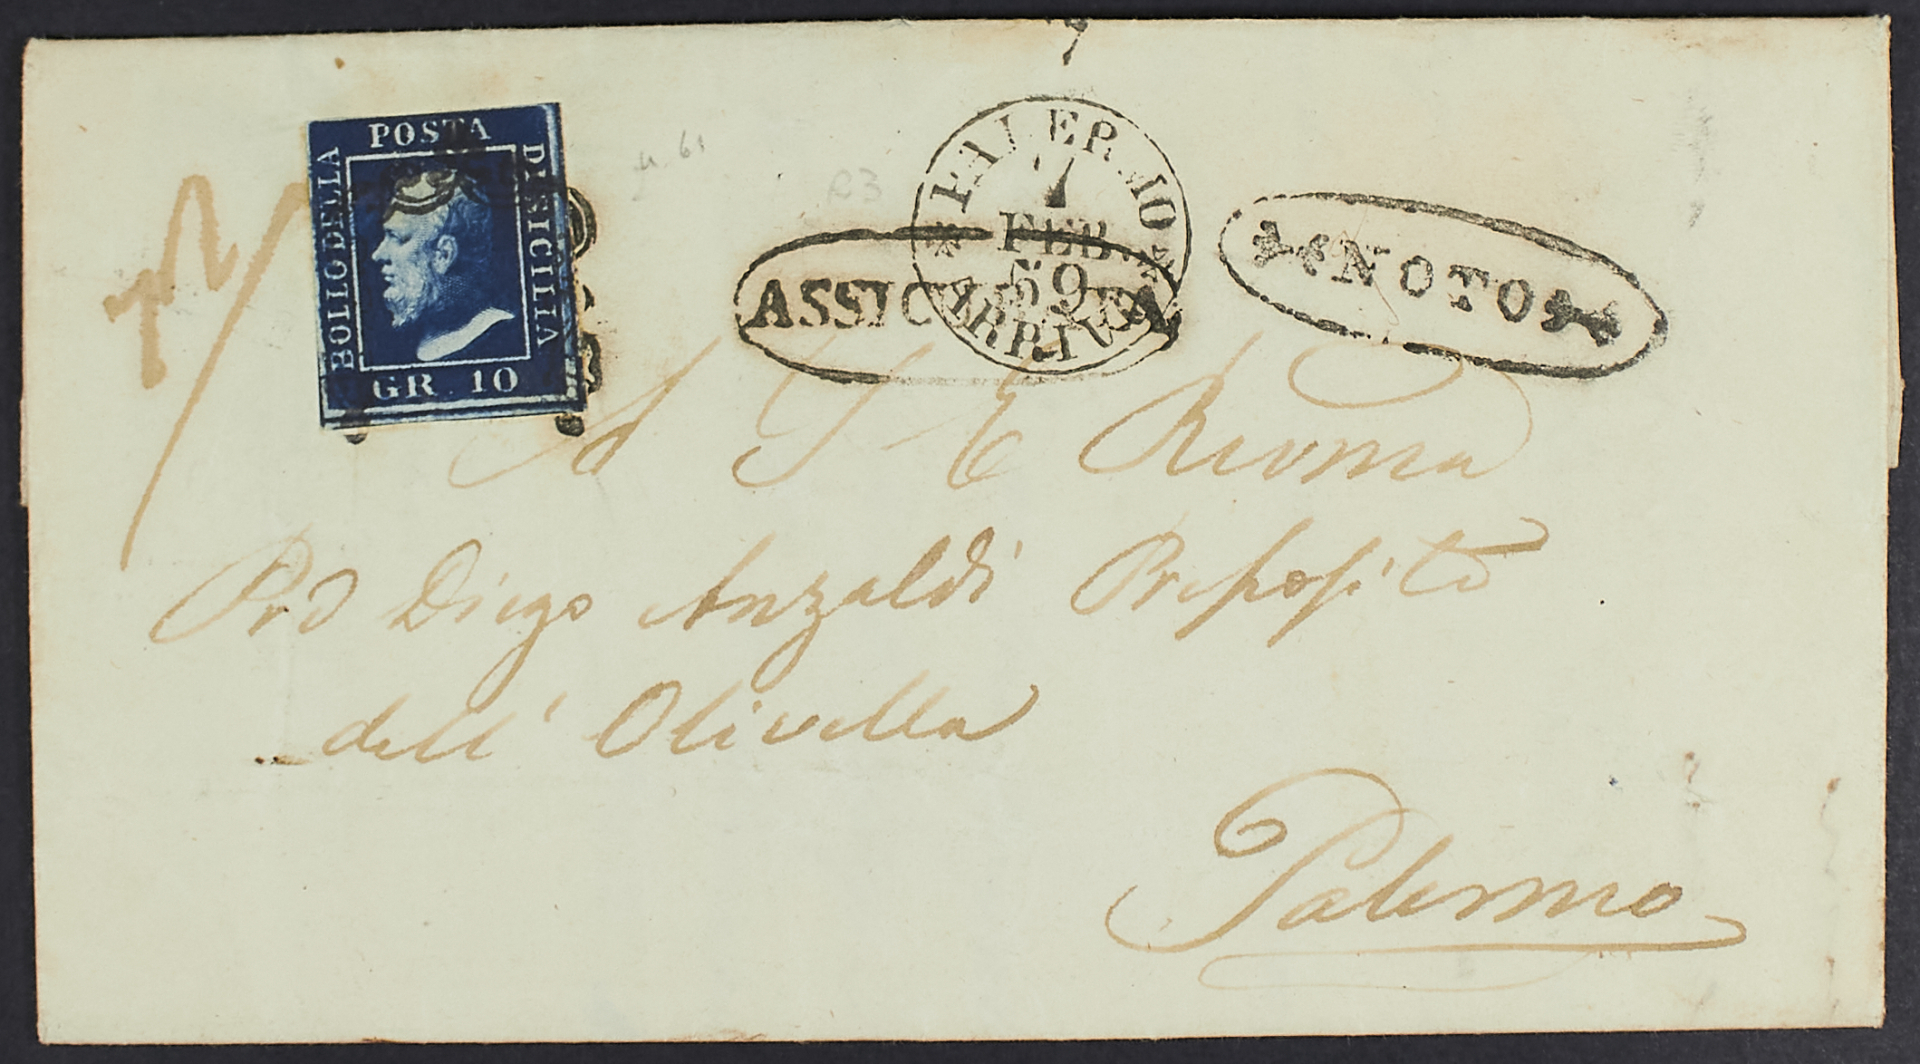 POSTA
BOLLO DELLA
DI SICILIA
GR. 10
PALERMO
7
FEB.
59
ARRIVO
ASSICURATA
NOTO
R3
A S E Revma
Prd Diego Anzaldi Preposito
dell' Olivella
Palermo